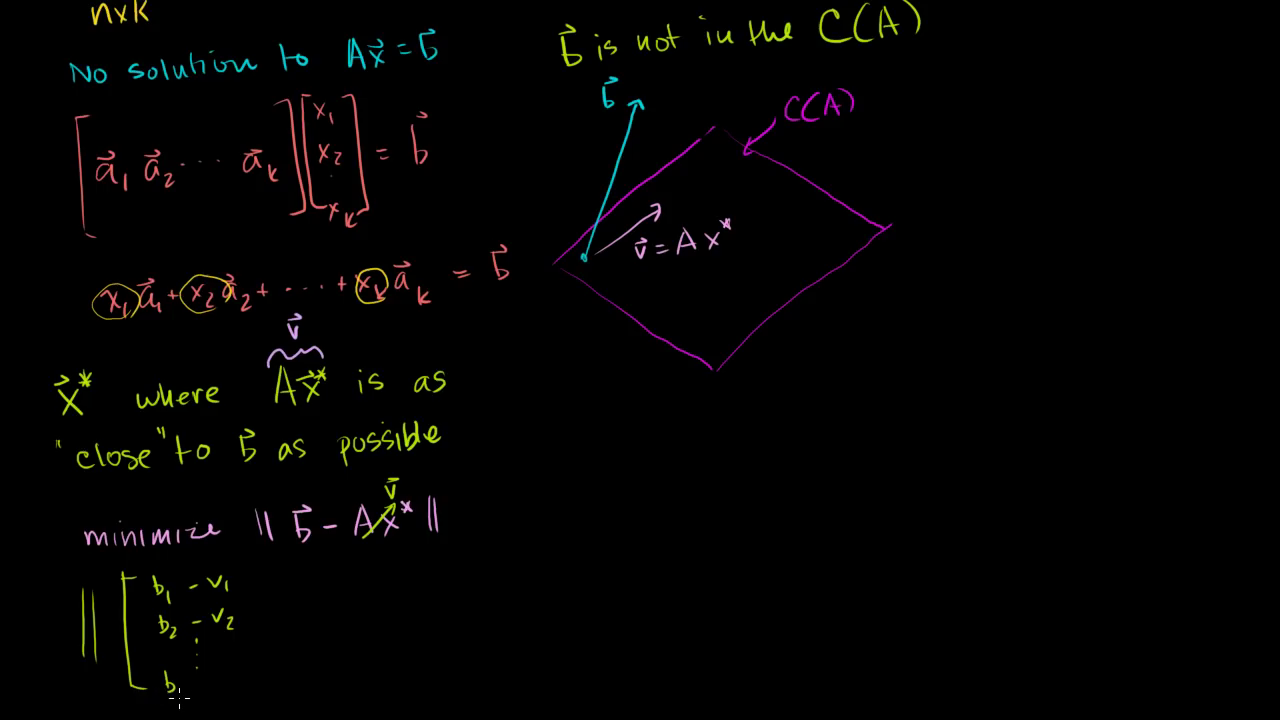 n×k
No solution to Ax⃗ = b⃗
[ a⃗₁ a⃗₂ ··· a⃗ₖ ] [ x₁ x₂ ⋮ xₖ ] = b⃗
x₁a⃗₁ + x₂a⃗₂ + ····· + xₖa⃗ₖ = b⃗
v⃗
x⃗* where Ax⃗* is as
"close" to b⃗ as possible
v⃗
minimize || b⃗ - Ax⃗* ||
|| [ b₁ - v₁
b₂ - v₂
⋮
b
b⃗ is not in the C(A)
b⃗
C(A)
v⃗ = Ax*